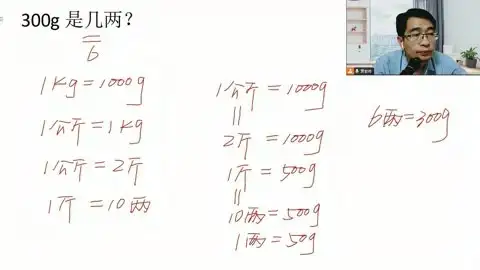 300g 是几两？
6
1kg = 1000g
1公斤 = 1kg
1公斤 = 2斤
1斤 = 10两
1公斤 = 1000g
2斤 = 1000g
1斤 = 500g
10两 = 500g
1两 = 50g
6两 = 300g